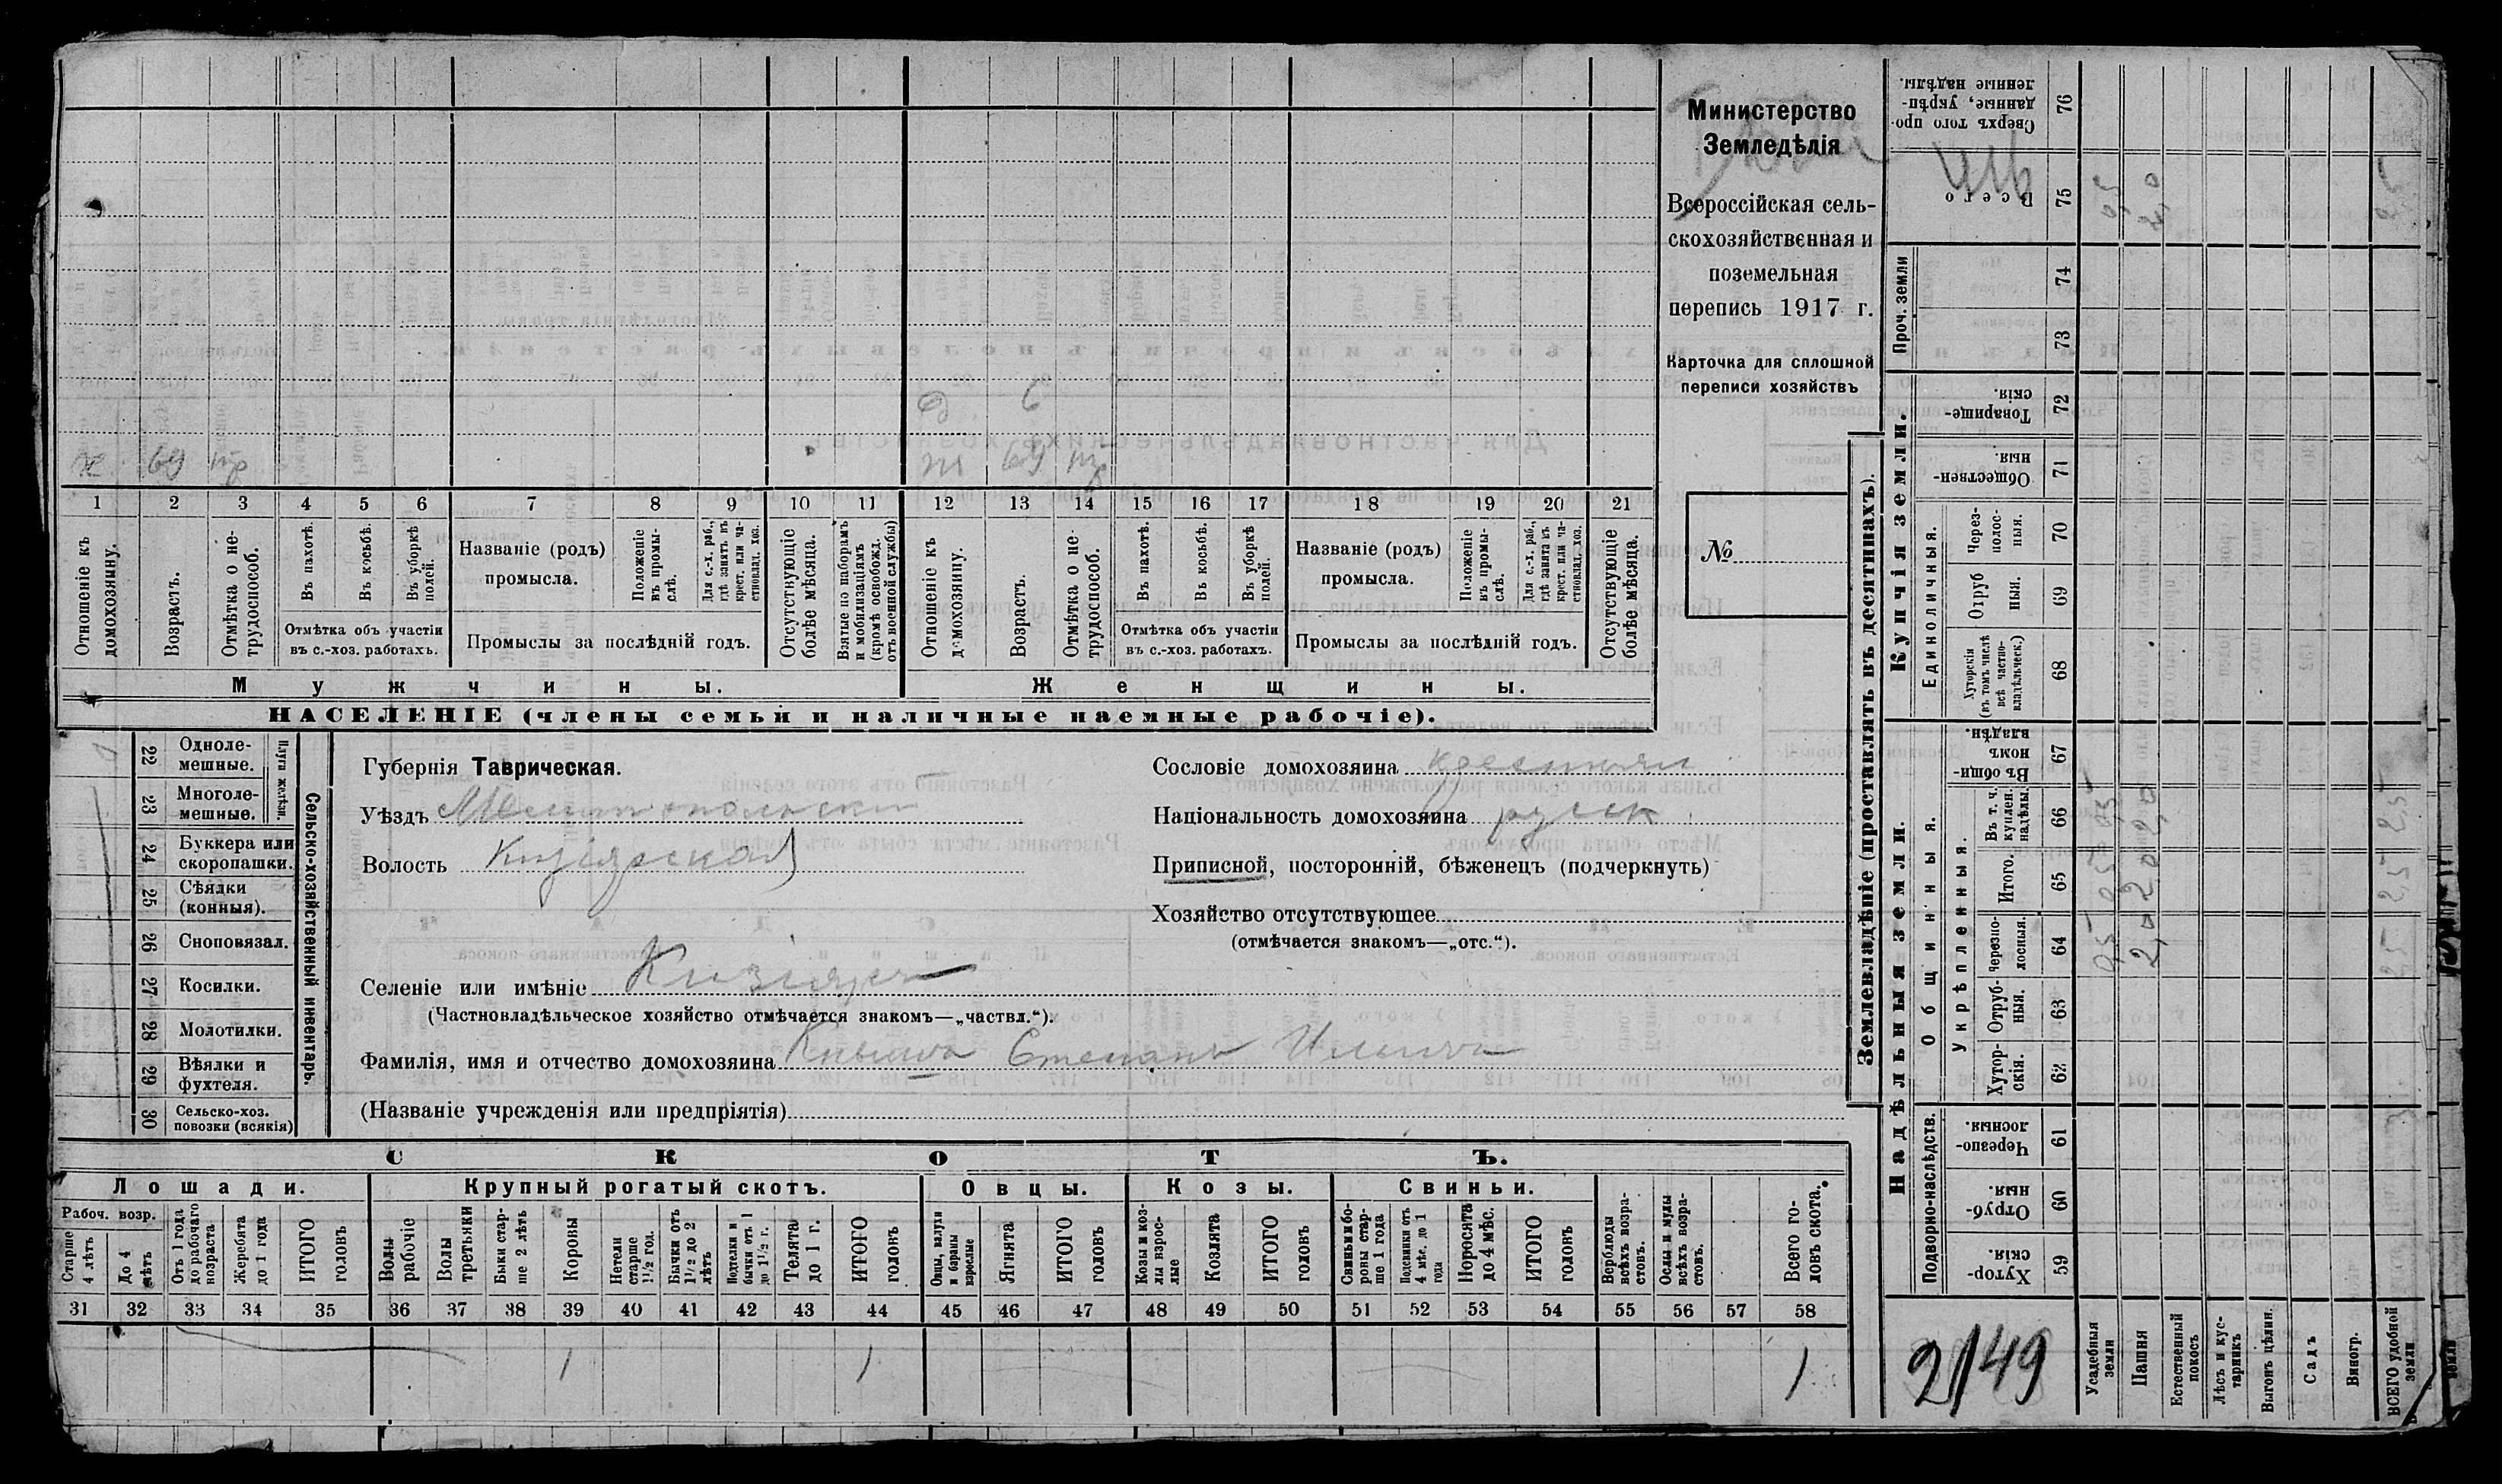 Министерство
Земледѣлія
Всероссійская сель-
скохозяйственная и
поземельная
перепись 1917 г.
Карточка для сплошной
переписи хозяйствъ
№
д 6
х 69 нтр ж 69 нтр
1 2 3 4 5 6 7 8 9 10 11 12 13 14 15 16 17 18 19 20 21
Отношеніе къ домохозяину.
Возрастъ.
Отмѣтка о не-трудоспособ.
Въ пахотѣ.
Въ косьбѣ.
Въ уборкѣ полей.
Отмѣтка объ участіи
въ с.-хоз. работахъ.
Названіе (родъ)
промысла.
Положеніе въ промы-слѣ.
Для с.-х. раб., гдѣ занятъ въ крест. или ча-стновлад. хоз.
Промыслы за послѣдній годъ.
Отсутствующіе болѣе мѣсяца.
Взятые по наборамъ и мобилизаціямъ (кромѣ освобожд. отъ военной службы)
Отношеніе къ домохозяину.
Возрастъ.
Отмѣтка о не-трудоспособ.
Въ пахотѣ.
Въ косьбѣ.
Въ уборкѣ полей.
Отмѣтка объ участіи
въ с.-хоз. работахъ.
Названіе (родъ)
промысла.
Положеніе въ промы-слѣ.
Для с.-х. раб., гдѣ занята въ крест. или ча-стновлад. хоз.
Промыслы за послѣдній годъ.
Отсутствующіе болѣе мѣсяца.
Мужчины. Женщины.
НАСЕЛЕНІЕ (члены семьи и наличные наемные рабочіе).
Сельско-хозяйственный инвентарь.
Плуги желѣзн.
22 Одноле-мешные.
23 Многоле-мешные.
24 Буккера или скоропашки.
25 Сѣялки (конныя).
26 Сноповязал.
27 Косилки.
28 Молотилки.
29 Вѣялки и фухтеля.
30 Сельско-хоз. повозки (всякія)
Губернія Таврическая.
Уѣздъ Мелитопольски
Волость Кизіярская
Селеніе или имѣніе Кизіяръ
(Частновладѣльческое хозяйство отмѣчается знакомъ—„частвл.“).
Фамилія, имя и отчество домохозяина Степанъ Ильичъ
(Названіе учрежденія или предпріятія)
Сословіе домохозяина крестьян
Національность домохозяина русск
Приписной, посторонній, бѣженецъ (подчеркнуть)
Хозяйство отсутствующее
(отмѣчается знакомъ—„отс.“).
СКОТЪ.
Лошади. Крупный рогатый скотъ. Овцы. Козы. Свиньи.
Рабоч. возр.
Старше 4 лѣтъ
До 4 лѣтъ
Отъ 1 года до рабочаго возраста
Жеребята до 1 года
ИТОГО головъ
Волы рабочіе
Волы третьяки
Быки стар-ше 2 лѣтъ
Коровы
Нетели старше 1½ год.
Бычки отъ 1½ до 2 лѣтъ
Подтелки и бычки отъ 1 до 1½ г.
Телята до 1 г.
ИТОГО головъ
Овцы, валухи и бараны взрослые
Ягнята
ИТОГО головъ
Козы и коз-лы взрос-лые
Козлята
ИТОГО головъ
Свиньи и бо-ровы стар-ше 1 года
Подсвинки отъ 4 мѣс. до 1 года
Поросята до 4 мѣс.
ИТОГО головъ
Верблюды всѣхъ возра-стовъ.
Ослы и мулы всѣхъ возра-стовъ.
Всего го-ловъ скота.
31 32 33 34 35 36 37 38 39 40 41 42 43 44 45 46 47 48 49 50 51 52 53 54 55 56 57 58
1 1 1
Землевладѣніе (проставлять въ десятинахъ).
Купчія земли.
Сверхъ того про-данные, укрѣп-ленные надѣлы. 76
Всего 75
Проч. земли
74
73
Товарище-скія. 72
Обществен-ныя. 71
Единоличныя.
Через-полос-ныя. 70
Отруб ныя. 69
Хуторскія (въ томъ числѣ всѣ частно-владѣльческ.) 68
Надѣльныя земли.
Въ общи-номъ владѣн. 67
Общинныя.
Укрѣпленныя.
Въ т. ч. куплен. надѣлы. 66
Итого. 65
Черезпо-лосныя. 64
Отруб-ныя. 63
Хутор-скія. 62
Подворно-наслѣдств.
Черезпо-лосныя. 61
Отруб-ныя. 60
Хутор-скія. 59
Усадебныя земли
Пашня
Естественный покосъ
Лѣсъ и кус-тарникъ
Выгонъ цѣлин.
Садъ
Виногр.
ВСЕГО удобной земли
2/149